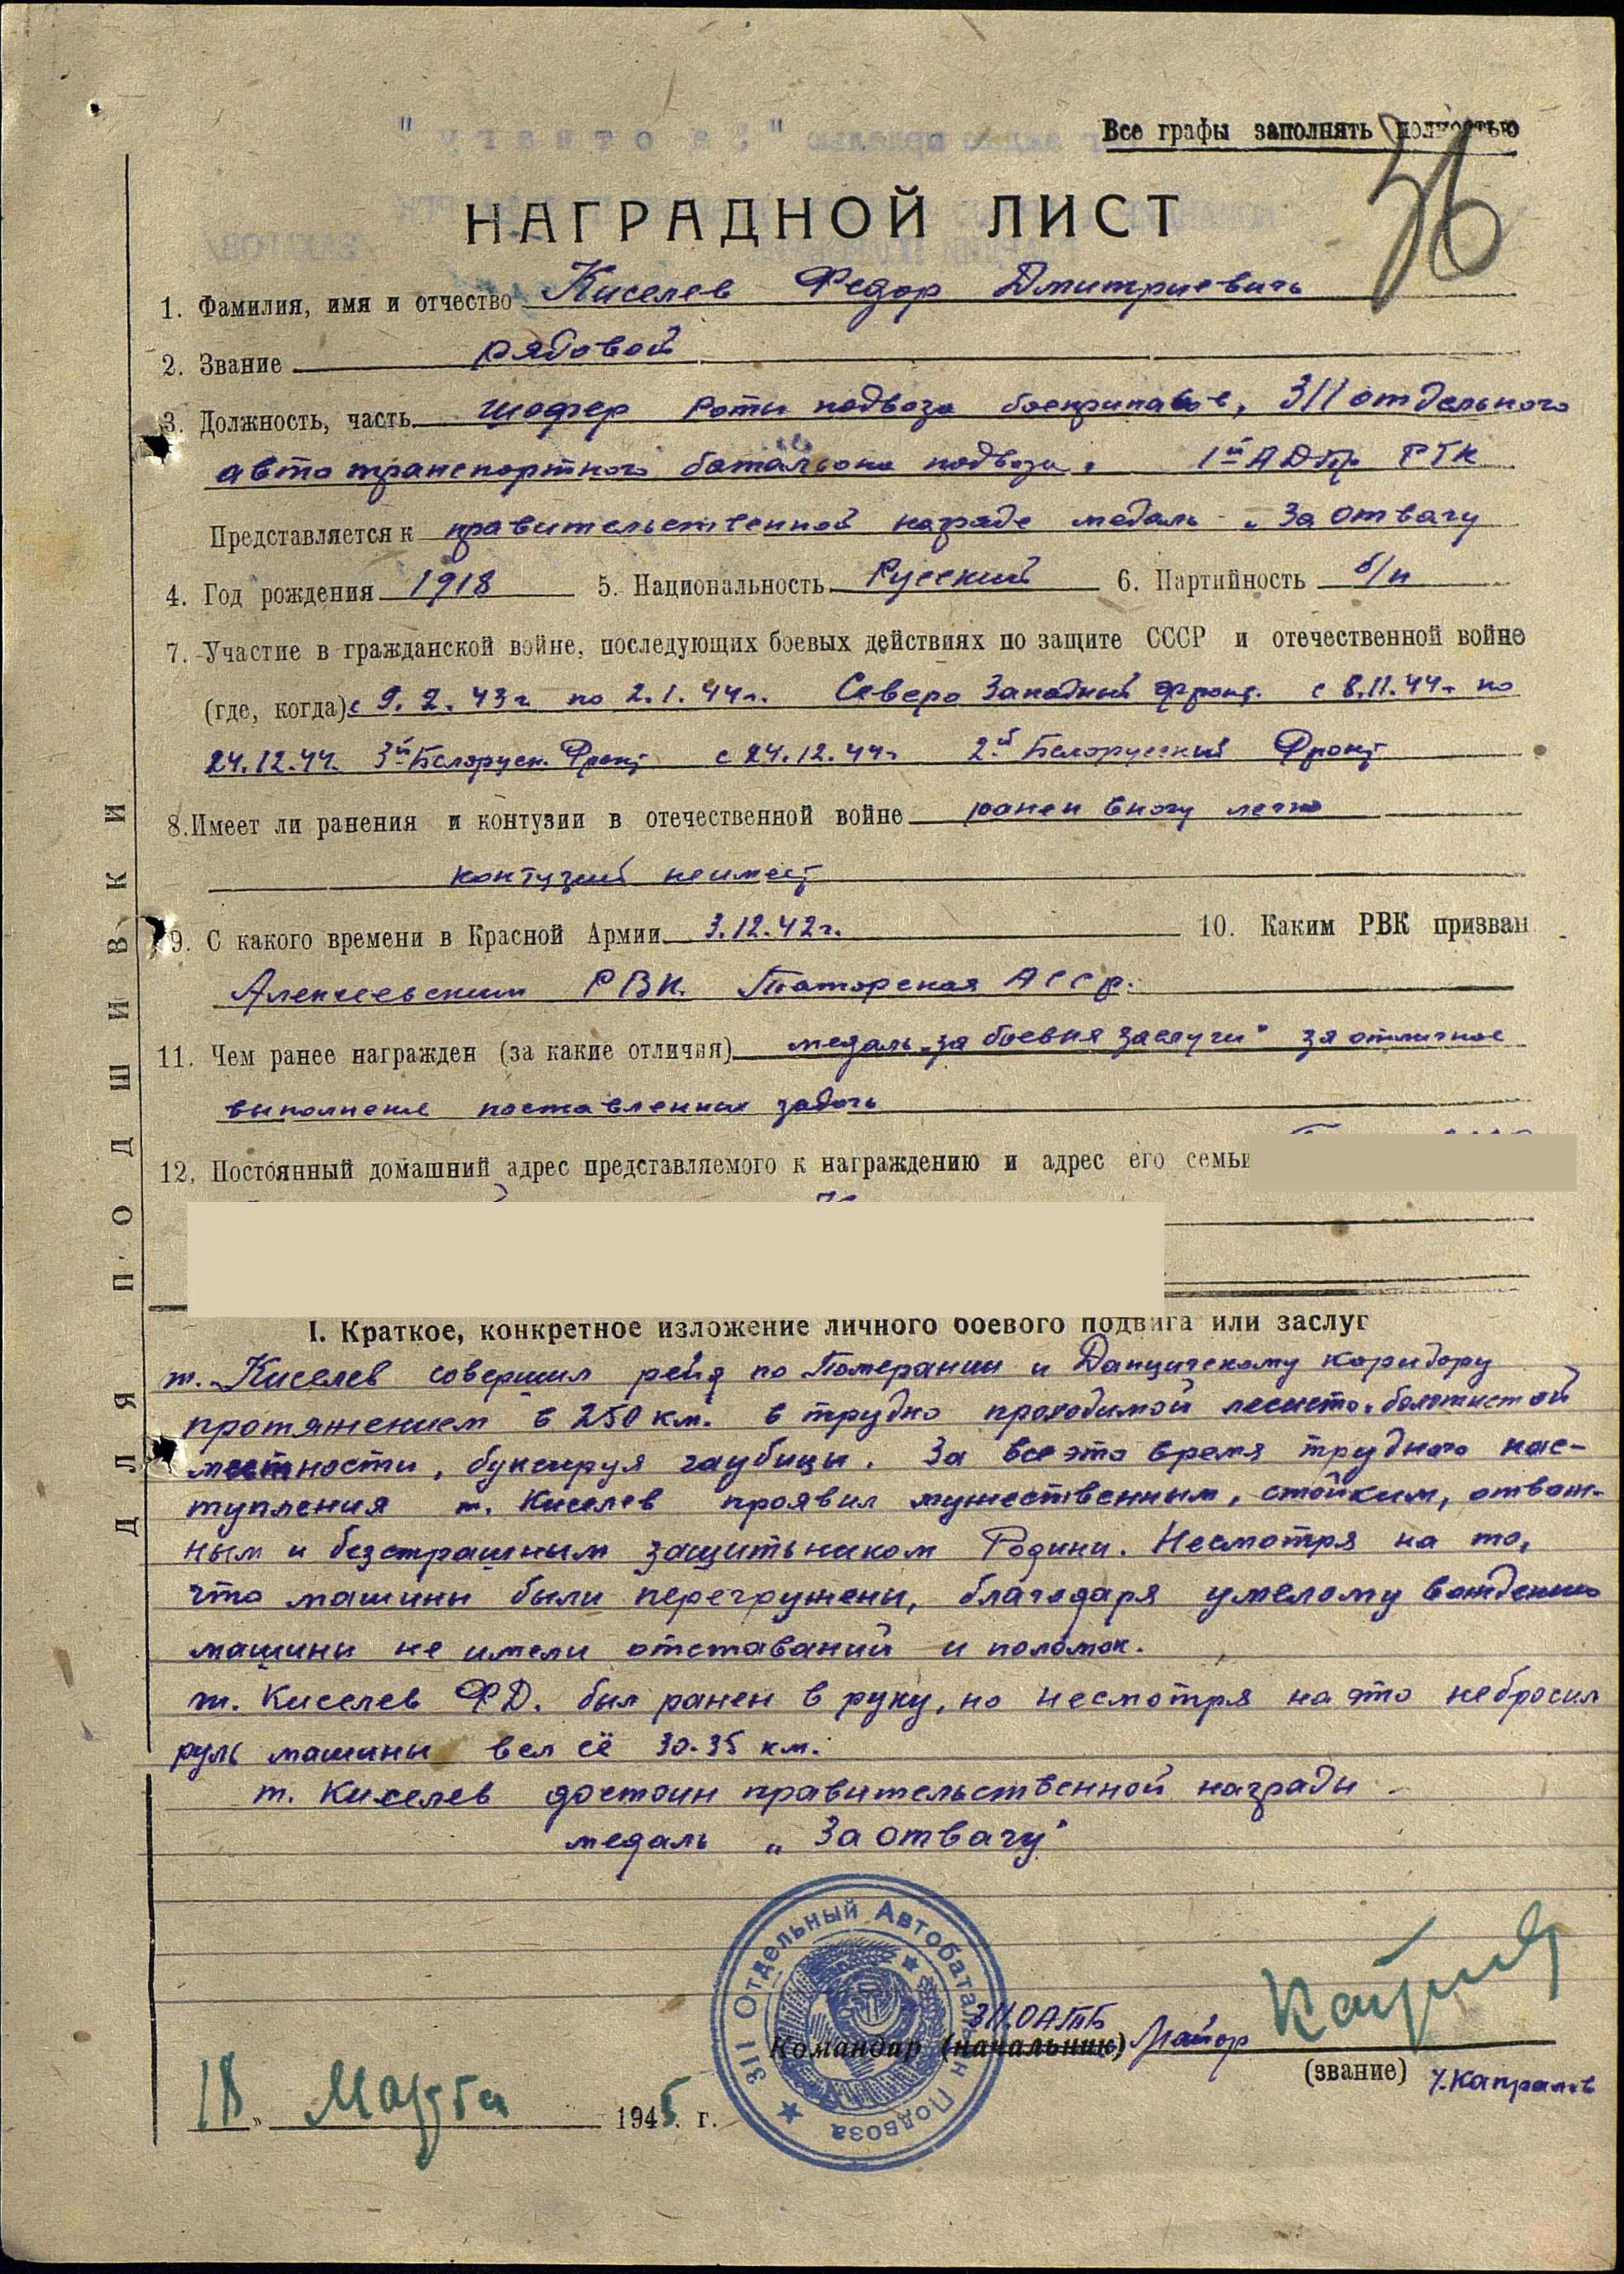 Все графы заполнять полностью
36
НАГРАДНОЙ ЛИСТ
1. Фамилия, имя и отчество Киселев Федор Дмитриевичь
2. Звание рядовой
3. Должность, часть шофер роты подвоза боеприпасов, 311 отдельного
автотранспортного батальона подвоза. 1й АДПр РГК
Представляется к правительственной награде медаль „За отвагу
4. Год рождения 1918 5. Национальность Русский 6. Партийность б/п
7. Участие в гражданской войне, последующих боевых действиях по защите СССР и отечественной войне
(где, когда) с 9.2.43г. по 2.1.44г. Северо Западный фронт. с 8.11.44г по
24.12.44. 3й Белорусн. Фронт с 24.12.44г 2й Белорусский Фронт
8. Имеет ли ранения и контузии в отечественной войне ранен в ногу легко
контузий неимеет
9. С какого времени в Красной Армии 3.12.42г. 10. Каким РВК призван
Алексеевским РВК. Таторская АССР.
11. Чем ранее награжден (за какие отличия) медаль „за боевия заслуги" за отличное
выполнение поставленних задачь
12. Постоянный домашний адрес представляемого к награждению и адрес его семьи
I. Краткое, конкретное изложение личного боевого подвига или заслуг
т. Киселев совершил рейд по Померании и Данцигскому коридору
протяжением в 250 км. в трудно проходимой лесисто-болотистой
местности, буксируя гаубицы. За все это время трудного нас-
тупления т. Киселев проявил мужественным, стойким, отваж-
ным и безстрашным защитьником Родини. Несмотря на то,
что машины были перегружены, благодаря умелому вождению
машини не имели отставаний и поломок.
т. Киселев ФД. был ранен в руку, но несмотря на это небросил
руль машины вел её 30-35 км.
т. Киселев достоин правительственной награди
медаль „За отвагу"
311 Отдельный Автобаталион Подвоза
311.ОАТБ
Командир (начальник) Майор
(звание) /.Капралов
18 „ Марта 1945 г.
ДЛЯ ПОДШИВКИ